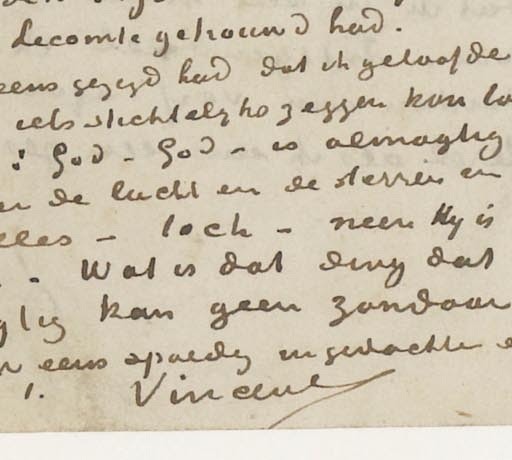 Lecomte getrouwd had.
eens gezegd had dat ik geloofde
iets stichtelijks zeggen kon
: God - God - is almagtig
de lucht en de sterren en
alles - toch - neen Hy is
- Wat is dat ding dat
kan geen zondaar
eens spoedig in gedachten
Vincent